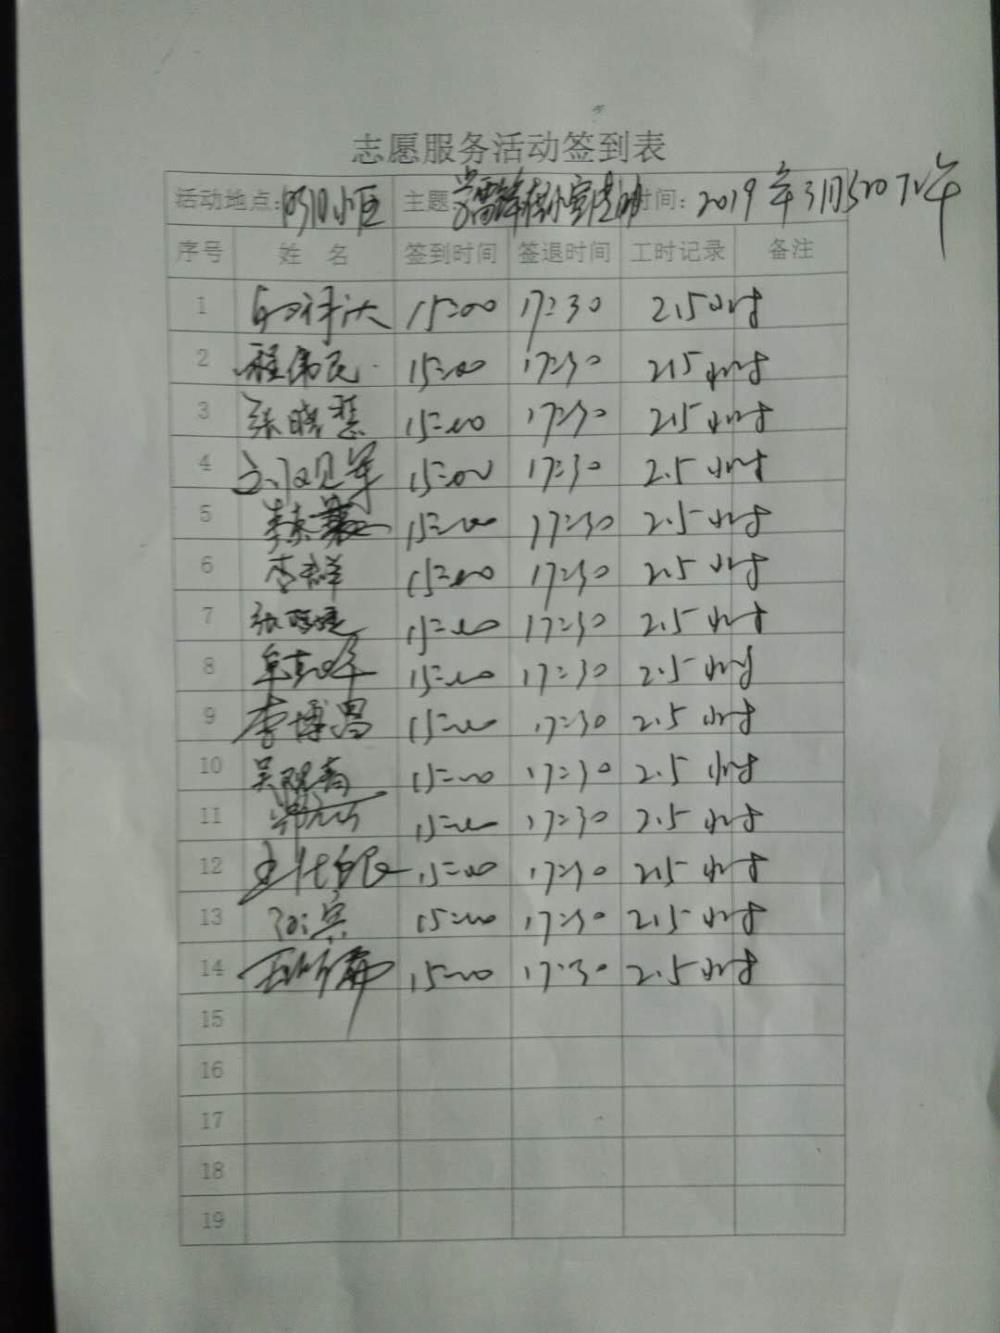 志愿服务活动签到表
活动地点: 小区 主题 学雷锋 时间: 2019年3月5日下午
序号 姓名 签到时间 签退时间 工时记录 备注
1 15:00 17:30 2.5小时
2 程伟民 15:00 17:30 2.5小时
3 张晓慧 15:00 17:30 2.5小时
4 15:00 17:30 2.5小时
5 15:00 17:30 2.5小时
6 李群 15:00 17:30 2.5小时
7 15:00 17:30 2.5小时
8 15:00 17:30 2.5小时
9 李博昌 15:00 17:30 2.5小时
10 15:00 17:30 2.5小时
11 15:00 17:30 2.5小时
12 15:00 17:30 2.5小时
13 15:00 17:30 2.5小时
14 15:00 17:30 2.5小时
15
16
17
18
19